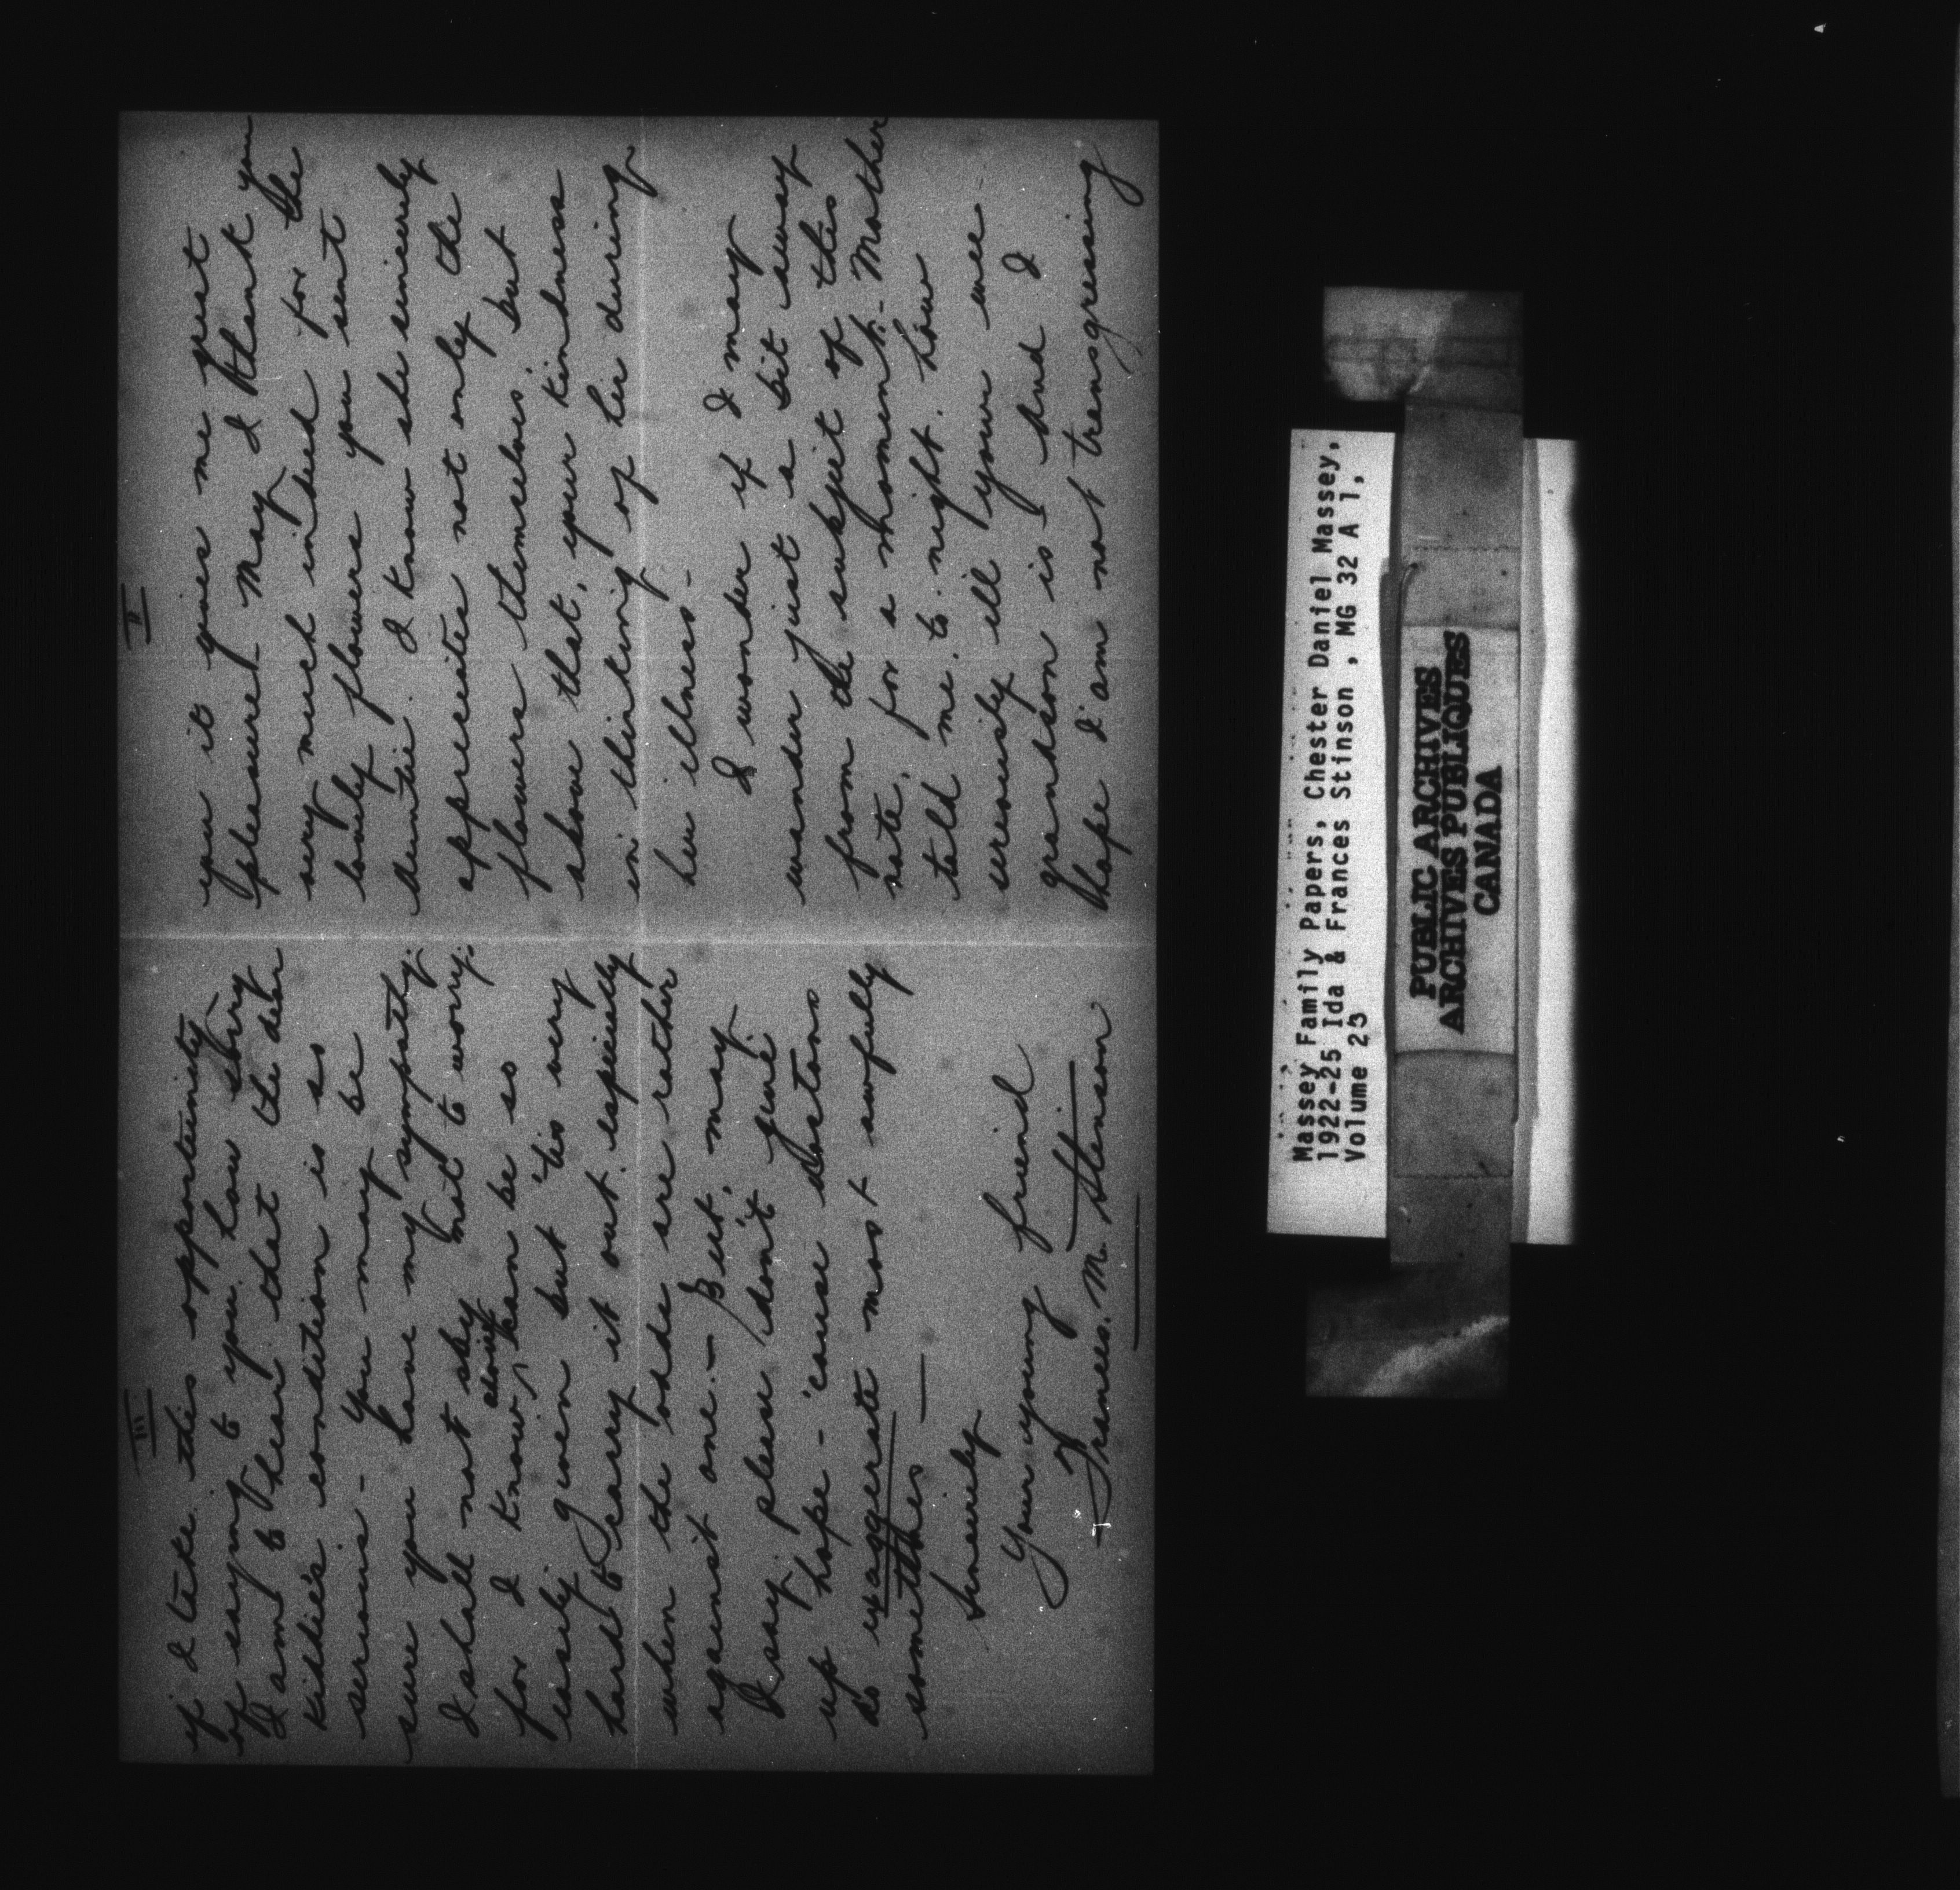 II
you it gives me great
pleasure! May I thank you
very much indeed for the
lovely flowers you sent
Auntie. I know she sincerely
appreciates not only the
flowers themselves, but
above that, your kindness
in thinking of her during
her illness -
I wonder if I may
wander just a bit away
from the subject of this
note, for a moment. - Mother
told me. to. night. how
seriously ill your wee -
grandson is, and I
hope I am not transgressing
III
if I take this opportunity
of saying to you how sorry
I am to hear that the dear
kiddie's condition is so
serious - You may be
sure you have my sympathy.
I shall not say "not to worry."
for I know, advice can be so
easily given but 'tis very
hard to carry it out. especially
when the odds are rather
against one. - But, may
I say, please don't give
up hope - 'cause doctors
do exaggerate most awfully
sometimes —
Sincerely
Your young friend
Frances. M. Stinson
Massey Family Papers, Chester Daniel Massey,
1922-25 Ida & Frances Stinson , MG 32 A 1,
Volume 23
PUBLIC ARCHIVES
ARCHIVES PUBLIQUES
CANADA